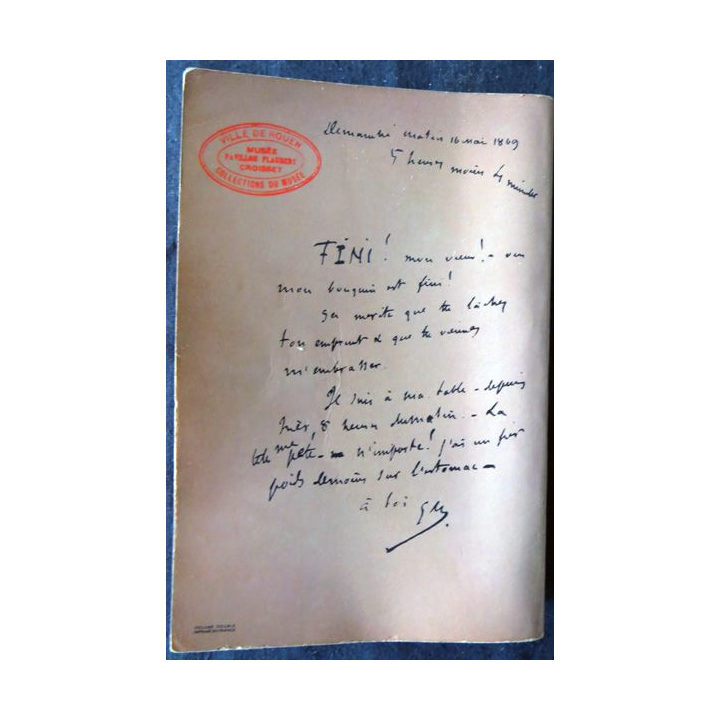 VILLE DE ROUEN
MUSÉE
PAVILLON FLAUBERT
CROISSET
COLLECTIONS DU MUSÉE
Dimanche matin 16 mai 1869
5 heures moins 4 minutes
FINI! mon vieux! - oui
mon bouquin est fini!
Ça mérite que tu lâches
ton emprunt & que tu viennes
m'embrasser.
Je suis à ma table - depuis
hier, 8 heures du matin. - La
tête me pète - n'importe! j'ai un fier
poids de moins sur l'estomac -
à toi
VOLUME DOUBLE